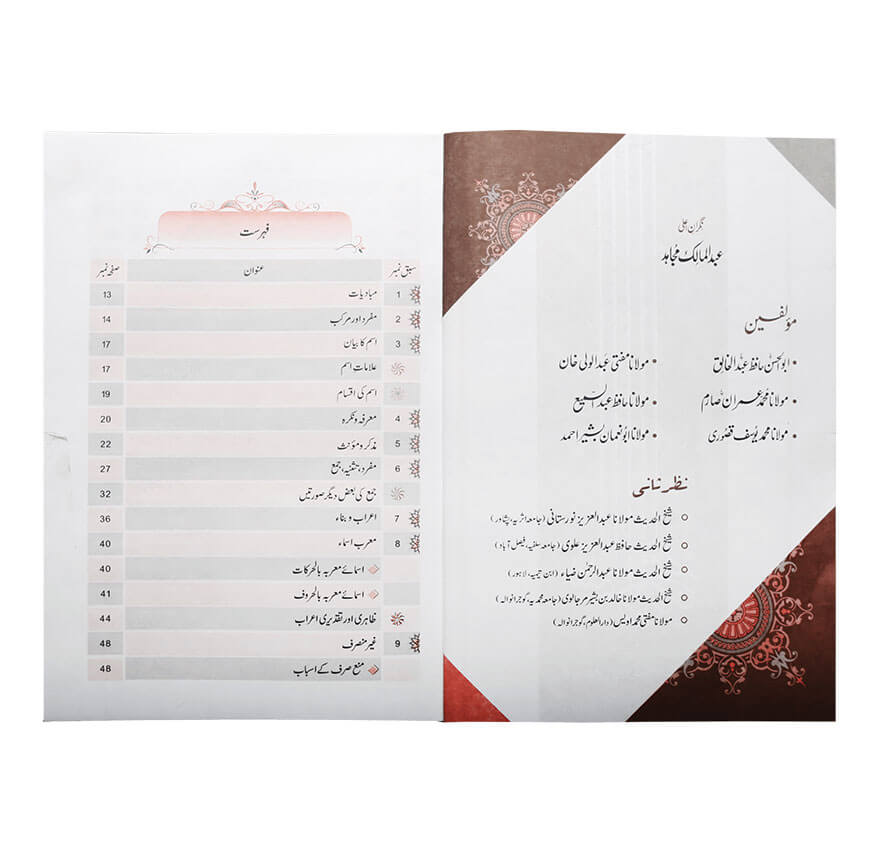 نگران اعلی
عبدالمالک مجاہد
مؤلفین
• ابوالحسن حافظ عبدالخالق • مولانا مفتی عبدالولی خان
• مولانا محمد عمران صارم • مولانا حافظ عبدالسمیع
• مولانا محمد یوسف قصوری • مولانا ابونعمان بشیر احمد
نظر ثانی
شیخ الحدیث مولانا عبدالعزیز نورستانی (جامعہ اثریہ، پشاور)
شیخ الحدیث حافظ عبدالعزیز علوی (جامعہ سلفیہ، فیصل آباد)
شیخ الحدیث مولانا عبدالرحمٰن ضیاء (ابن تیمیہ، لاہور)
شیخ الحدیث مولانا خالد بن بشیر مرجالوی (جامعہ محمدیہ، گوجرانوالہ)
مولانا مفتی محمد اویس (دارالعلوم، گوجرانوالہ)
فہرست
سبق نمبر عنوان صفحہ نمبر
1 مبادیات 13
2 مفرد اور مرکب 14
3 اسم کا بیان 17
علامات اسم 17
اسم کی اقسام 19
4 معرفہ و نکرہ 20
5 مذکر و مؤنث 22
6 مفرد، تثنیہ، جمع 27
جمع کی بعض دیگر صورتیں 32
7 اعراب و بناء 36
8 معرب اسماء 40
اسمائے معربہ بالحرکات 40
اسمائے معربہ بالحروف 41
ظاہری اور تقدیری اعراب 44
9 غیر منصرف 48
منع صرف کے اسباب 48